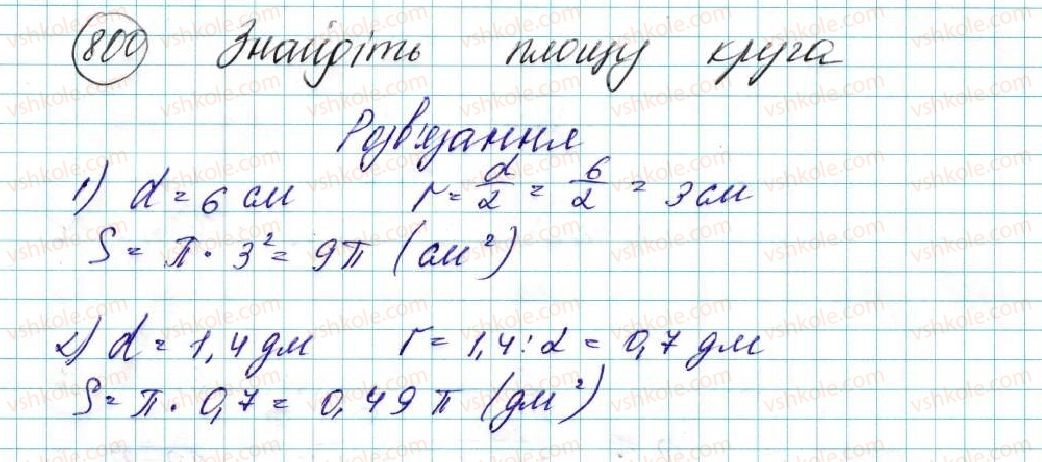 800 Знайдіть площу круга
Розв'язання
1) d = 6 см r = d/2 = 6/2 = 3 см
S = π · 3² = 9π (см²)
2) d = 1,4 дм r = 1,4 : 2 = 0,7 дм
S = π · 0,7 = 0,49 π (дм²)